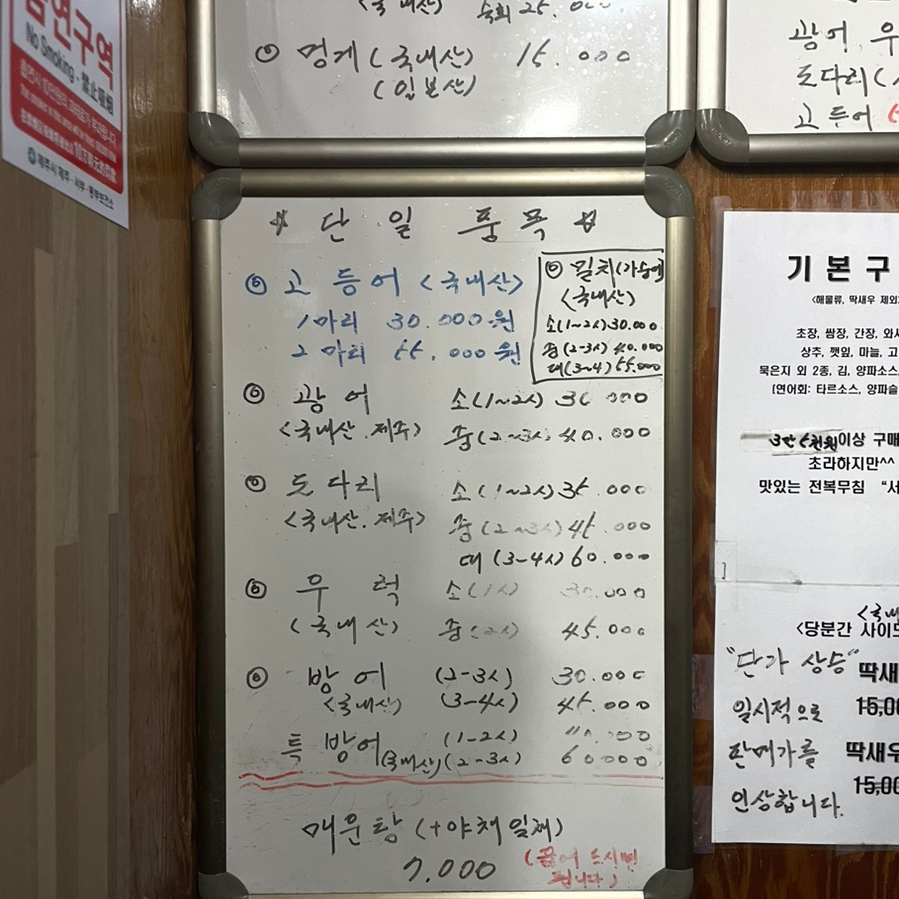 금연구역
No Smoking · 禁止吸烟
(국내산) 숙회 25.000
◎ 멍게 (국내산) 15.000
(일본산)
광어, 우
도다리(
고등어
☆ 단일 품목 ☆
◎ 고등어 <국내산>
1마리 30.000원
2마리 55.000원
<국내산>
소(1~2人)30.000
중(2-3人) 40.000
대(3~4)55.000
◎ 광어 소(1~2人) 30.000
<국내산.제주> 중(2~3人) 40.000
◎ 도다리 소(1~2人)35.000
<국내산.제주> 중(2~3人)45.000
대(3~4人)60.000
◎ 우럭 소(1人) 30.000
(국내산) 중(2人) 45.000
◎ 방어 (2-3人) 30.000
<국내산> (3-4人) 45.000
특 방어 (1-2人)
(국내산)(2-3人) 60000
매운탕 (+야채일체)
7.000 (끓여 드시면
됩니다)
기본구
<해물류, 딱새우 제외
초장, 쌈장, 간장, 와사
상추, 깻잎, 마늘, 고
묵은지 외 2종, 김, 양파소스,
[연어회: 타르소스, 양파슬
3만5천원이상 구매
초라하지만^^
맛있는 전복무침 “서
<국내
<당분간 사이드
"단가 상승" 딱새
일시적으로 15,00
판매가를 딱새우
인상합니다. 15,00